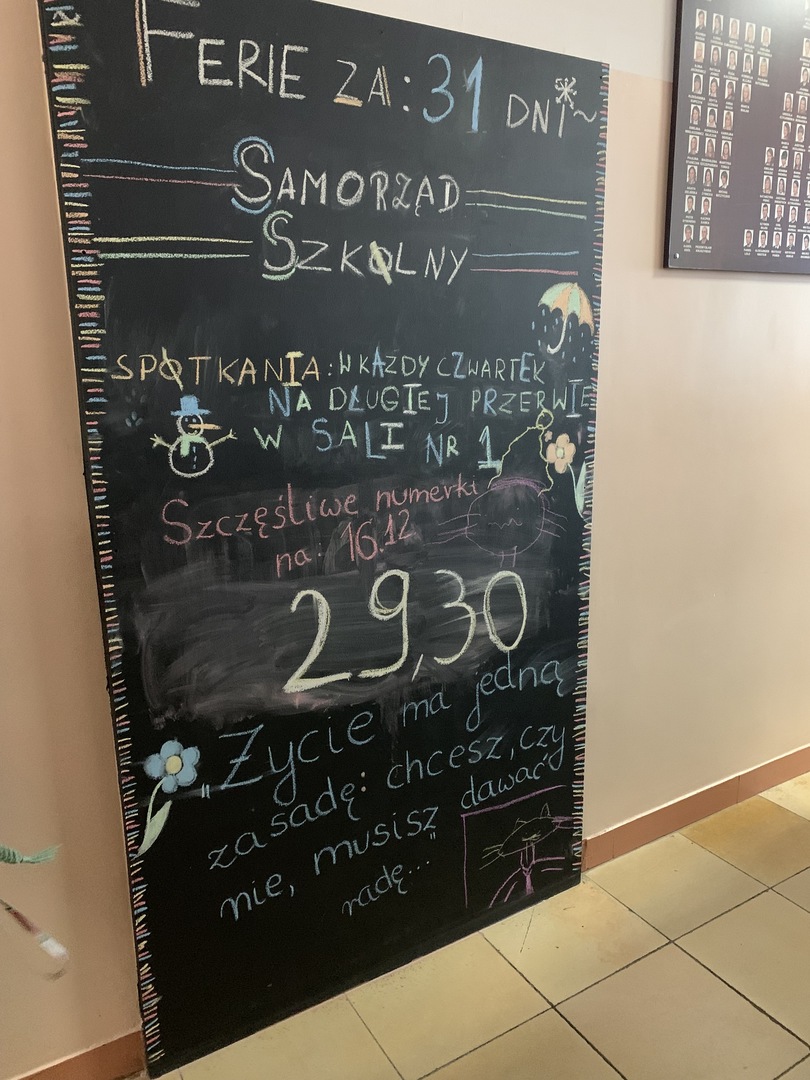 FERIE ZA: 31 DNI~
SAMORZĄD
SZKOLNY
SPOTKANIA: W KAŻDY CZWARTEK
NA DŁUGIEJ PRZERWIE
W SALI NR 1
Szczęśliwe numerki
na: 16.12
29,30
„Życie ma jedną
zasadę: chcesz, czy
nie, musisz dawać
radę..."